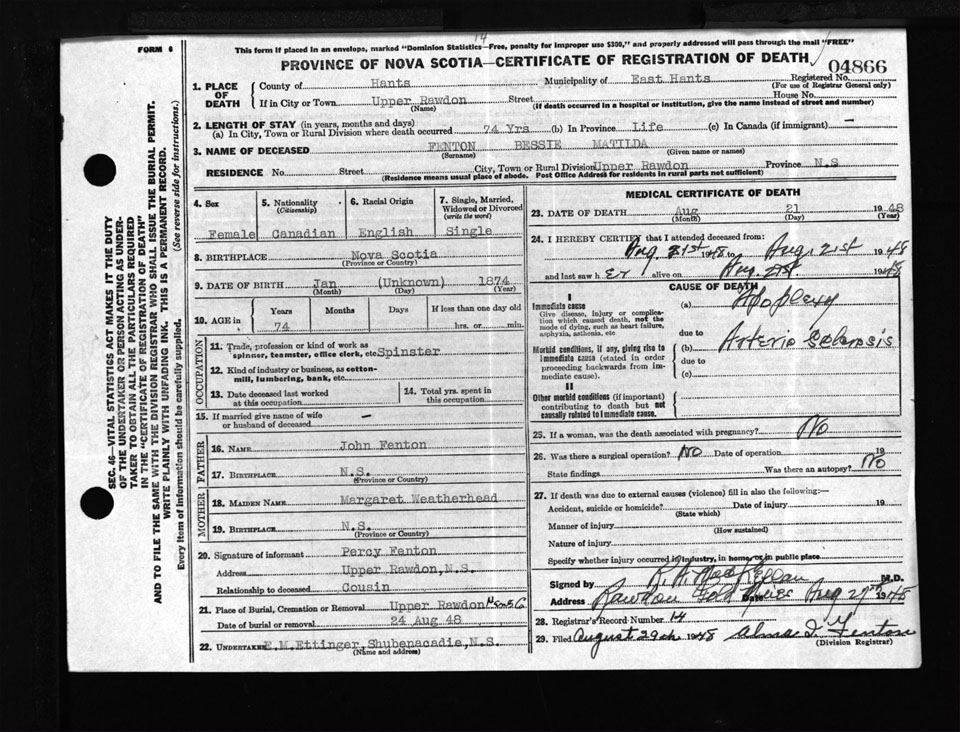 14
FORM 6
This form if placed in an envelope, marked "Dominion Statistics—Free, penalty for improper use $300," and properly addressed will pass through the mail "FREE"
PROVINCE OF NOVA SCOTIA—CERTIFICATE OF REGISTRATION OF DEATH
04866
Registered No.
(For use of Registrar General only)
1. PLACE OF DEATH
County of Hants Municipality of East Hants
If in City or Town Upper Rawdon Street House No.
(Name) (If death occurred in a hospital or institution, give the name instead of street and number)
2. LENGTH OF STAY (in years, months and days)
(a) In City, Town or Rural Division where death occurred 74 Yrs. (b) In Province Life (c) In Canada (if immigrant) —
3. NAME OF DECEASED FENTON BESSIE MATILDA
(Surname) (Given name or names)
RESIDENCE No. Street City, Town or Rural Division Upper Rawdon Province N.S
(Residence means usual place of abode. Post Office Address for residents in rural parts not sufficient)
4. Sex
Female
5. Nationality
(Citizenship)
Canadian
6. Racial Origin
English
7. Single, Married, Widowed or Divorced
(write the word)
Single
8. BIRTHPLACE Nova Scotia
(Province or Country)
9. DATE OF BIRTH Jan (Unknown) 1874
(Month) (Day) (Year)
10. AGE in
Years Months Days If less than one day old
74 hrs. or min.
OCCUPATION
11. Trade, profession or kind of work as spinner, teamster, office clerk, etc. Spinster
12. Kind of industry or business, as cotton-mill, lumbering, bank, etc.
13. Date deceased last worked at this occupation
14. Total yrs. spent in this occupation
15. If married give name of wife or husband of deceased —
FATHER
16. NAME John Fenton
17. BIRTHPLACE N.S.
(Province or Country)
MOTHER
18. MAIDEN NAME Margaret Weatherhead
19. BIRTHPLACE N.S.
(Province or Country)
20. Signature of informant Percy Fenton
Address Upper Rawdon, N.S.
Relationship to deceased Cousin
21. Place of Burial, Cremation or Removal Upper Rawdon
Date of burial or removal 24 Aug 48
22. UNDERTAKER E.M.Ettinger, Shubenacadie, N.S.
(Name and Address)
MEDICAL CERTIFICATE OF DEATH
23. DATE OF DEATH Aug 21 1948
(Month) (Day) (Year)
24. I HEREBY CERTIFY that I attended deceased from:
Aug. 21st 1948 to Aug. 21st 1948
and last saw her alive on Aug. 21st 1948
CAUSE OF DEATH
I
Immediate cause
Give disease, injury or complication which caused death, not the mode of dying, such as heart failure, asphyxia, asthenia, etc
(a) Apoplexy
due to
Morbid conditions, if any, giving rise to immediate cause (stated in order proceeding backwards from immediate cause).
(b) Arterio Sclerosis
due to
(c)
II
Other morbid conditions (if important) contributing to death but not causally related to immediate cause.
25. If a woman, was the death associated with pregnancy? No
26. Was there a surgical operation? No Date of operation 19
State findings Was there an autopsy? No
27. If death was due to external causes (violence) fill in also the following:—
Accident, suicide or homicide? Date of injury 19
(State which)
Manner of injury
(How sustained)
Nature of injury
Specify whether injury occurred in industry, in home, or in public place
Signed by M.D.
Address Rawdon Gold Mines Date Aug 1948
28. Registrar's Record Number 14
29. Filed August 29th 1948 Alma I. Fenton
(Division Registrar)
SEC. 46—VITAL STATISTICS ACT MAKES IT THE DUTY
OF THE UNDERTAKER OR PERSON ACTING AS UNDER-
TAKER TO OBTAIN ALL THE PARTICULARS REQUIRED
IN THE "CERTIFICATE OF REGISTRATION OF DEATH"
AND TO FILE THE SAME WITH THE DIVISION REGISTRAR WHO SHALL ISSUE THE BURIAL PERMIT.
WRITE PLAINLY WITH UNFADING INK. THIS IS A PERMANENT RECORD.
Every item of information should be carefully supplied. (See reverse side for instructions.)